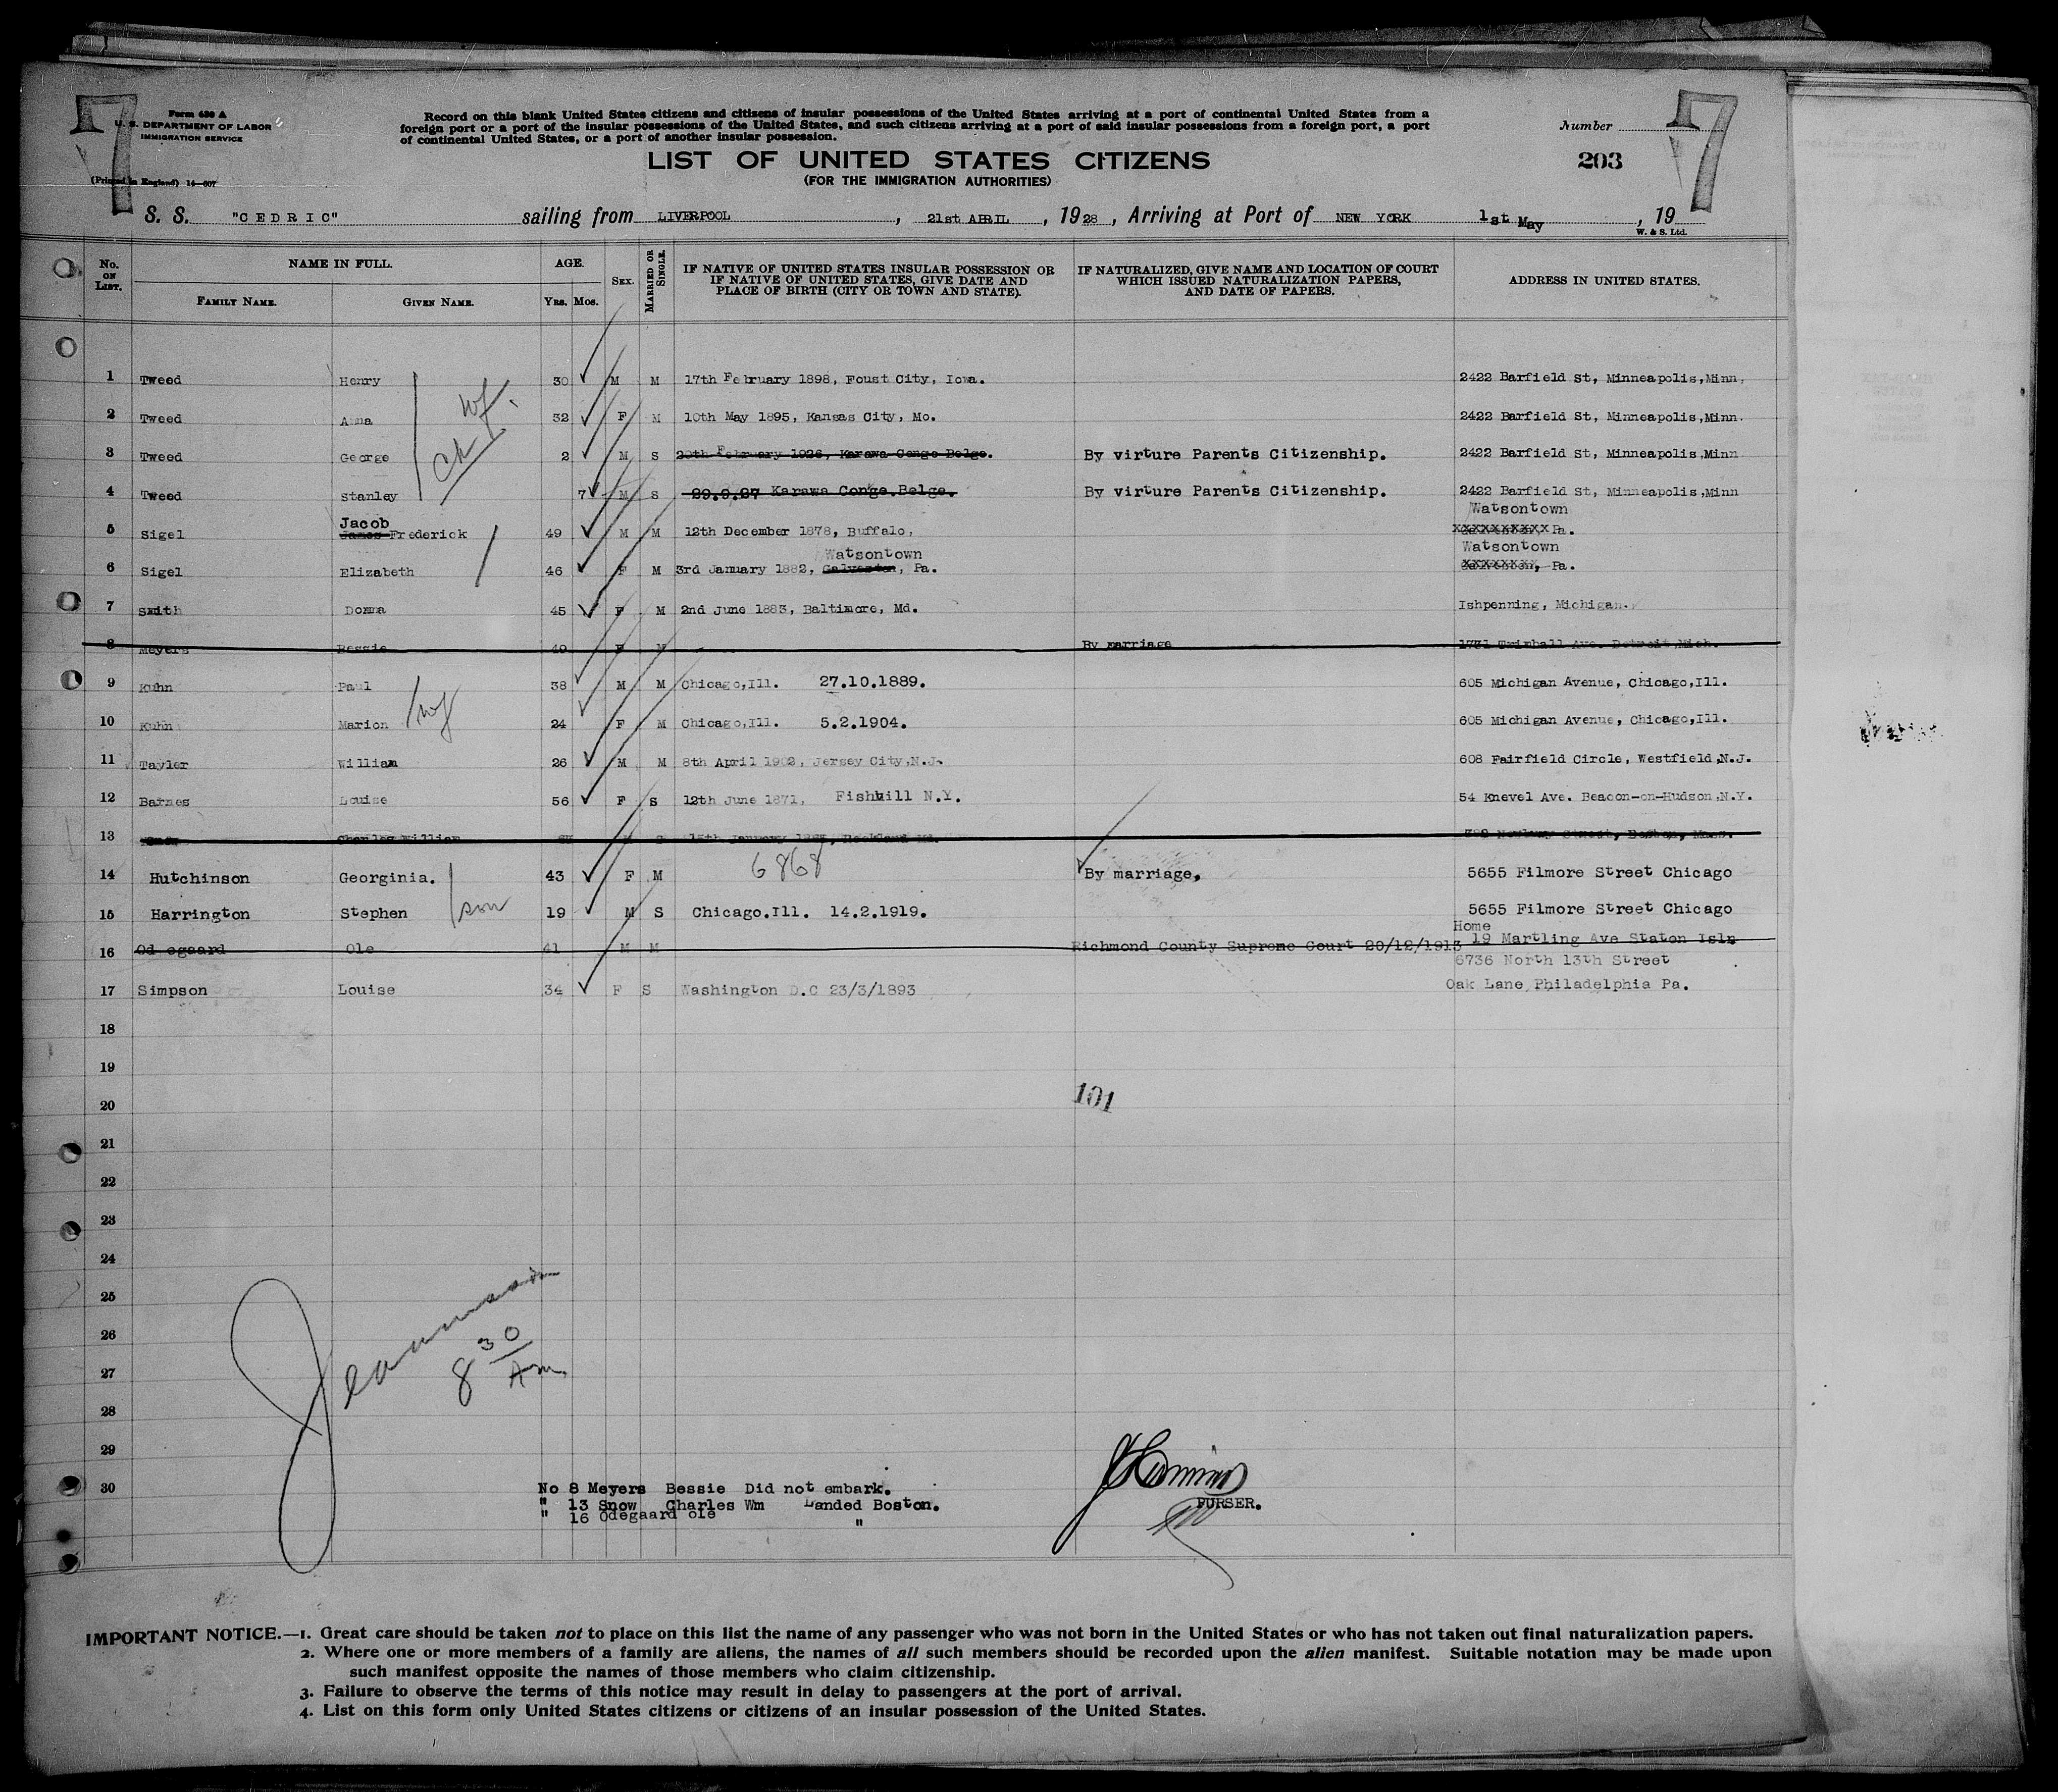 7
Form 630 A
U. S. DEPARTMENT OF LABOR
IMMIGRATION SERVICE
(Printed in England) 14—607
Record on this blank United States citizens and citizens of insular possessions of the United States arriving at a port of continental United States from a
foreign port or a port of the insular possessions of the United States, and such citizens arriving at a port of said insular possessions from a foreign port, a port
of continental United States, or a port of another insular possession.
Number
7
LIST OF UNITED STATES CITIZENS
203
(FOR THE IMMIGRATION AUTHORITIES)
S. S. "CEDRIC" sailing from LIVERPOOL, 21st APRIL, 1928, Arriving at Port of NEW YORK 1st May, 19
W. & S. Ltd.
No. ON LIST. NAME IN FULL. AGE. SEX. MARRIED OR SINGLE. IF NATIVE OF UNITED STATES INSULAR POSSESSION OR IF NATIVE OF UNITED STATES, GIVE DATE AND PLACE OF BIRTH (CITY OR TOWN AND STATE). IF NATURALIZED, GIVE NAME AND LOCATION OF COURT WHICH ISSUED NATURALIZATION PAPERS, AND DATE OF PAPERS. ADDRESS IN UNITED STATES.
FAMILY NAME. GIVEN NAME. YRS. MOS.
1 Tweed Henry 30 M M 17th February 1898, Foust City, Iowa. 2422 Barfield St, Minneapolis,Minn.
wf.
2 Tweed Anna 32 F M 10th May 1895, Kansas City, Mo. 2422 Barfield St, Minneapolis,Minn.
ch
3 Tweed George 2 M S 20th February 1926, Karawa Congo Belge. By virture Parents Citizenship. 2422 Barfield St, Minneapolis,Minn
4 Tweed Stanley 7 M S 29.9.27 Karawa Congo.Belge. By virture Parents Citizenship. 2422 Barfield St, Minneapolis,Minn
Jacob Watsontown
5 Sigel James Frederick 49 M M 12th December 1878, Buffalo, xxxxxxxxxx Pa.
Watsontown Watsontown
6 Sigel Elizabeth 46 F M 3rd January 1882, Galveston, Pa. Galveston, Pa.
7 Smith Donna 45 F M 2nd June 1883, Baltimore, Md. Ishpenning, Michigan.
8 Meyers Bessie 49 F M By marriage 1731 Trimball Ave. Detroit,Mich.
9 Kuhn Paul 38 M M Chicago,Ill. 27.10.1889. 605 Michigan Avenue, Chicago,Ill.
wf
10 Kuhn Marion 24 F M Chicago,Ill. 5.2.1904. 605 Michigan Avenue, Chicago,Ill.
11 Tayler William 26 M M 8th April 1902, Jersey City,N.J. 608 Fairfield Circle, Westfield,N.J.
12 Barnes Louise 56 F S 12th June 1871, Fishkill N.Y. 54 Knevel Ave. Beacon-on-Hudson,N.Y.
13 Snow Charles William M S 15th January Street, Boston, Mass.
6868
14 Hutchinson Georginia. 43 F M By marriage, 5655 Filmore Street Chicago
son
15 Harrington Stephen 19 M S Chicago.Ill. 14.2.1919. 5655 Filmore Street Chicago
Home
16 Od egaard Ole 41 M M Richmond County Supreme Court 20/12/1913 19 Martling Ave Staton Isln
6736 North 13th Street
17 Simpson Louise 34 F S Washington D.C 23/3/1893 Oak Lane Philadelphia Pa.
18
19
20
101
21
22
23
24
25
26
8 30 Am
27
28
29
30
No 8 Meyers Bessie Did not embark.
" 13 Snow Charles Wm Landed Boston.
" 16 Odegaard ole "
PURSER.
IMPORTANT NOTICE.—1. Great care should be taken not to place on this list the name of any passenger who was not born in the United States or who has not taken out final naturalization papers.
2. Where one or more members of a family are aliens, the names of all such members should be recorded upon the alien manifest. Suitable notation may be made upon
such manifest opposite the names of those members who claim citizenship.
3. Failure to observe the terms of this notice may result in delay to passengers at the port of arrival.
4. List on this form only United States citizens or citizens of an insular possession of the United States.